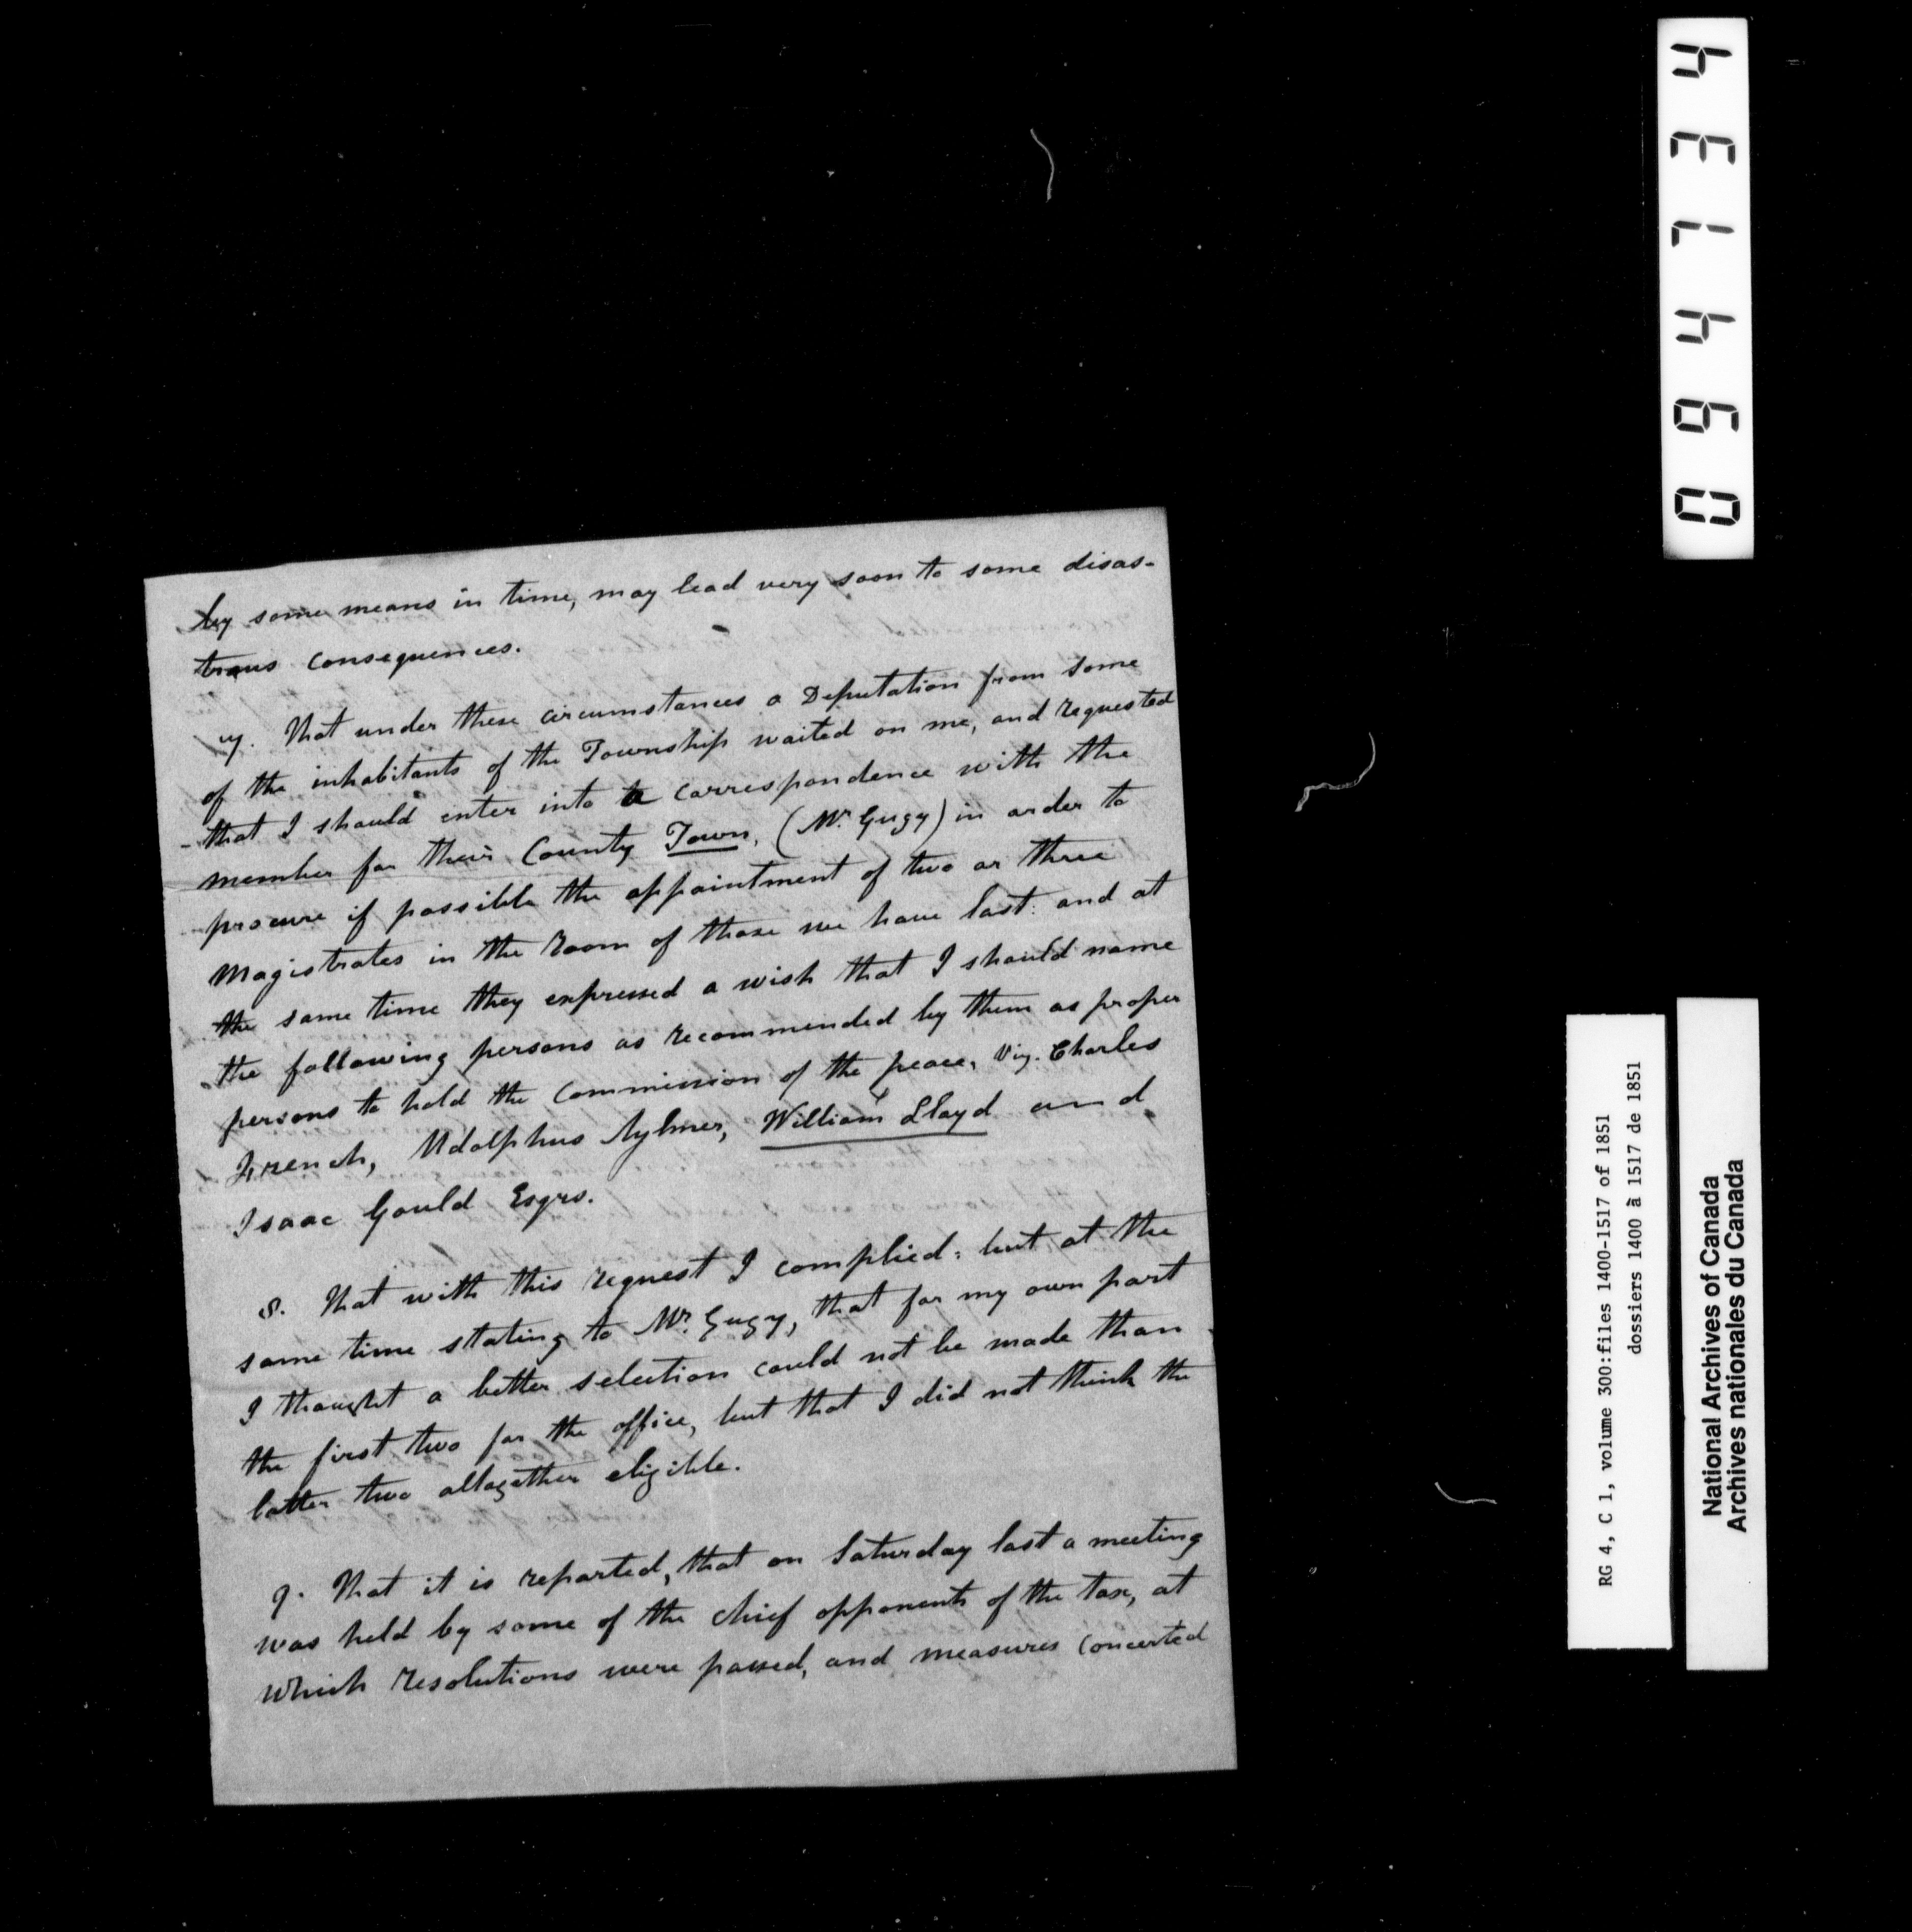 by some means in time, may lead very soon to some disas-
trous consequences.
7. That under these circumstances a Deputation from some
of the inhabitants of the Township waited on me, and requested
that I should enter into a correspondence with the
member for their County Town, (Mr. Gugy) in order to
procure if possible the appointment of two or three
Magistrates in the room of those we have lost: and at
the same time they expressed a wish that I should name
the following persons as recommended by them as proper
persons to hold the Commission of the peace, Viz. Charles
French, Udolphus Aylmer, William Lloyd and
Isaac Gould Esqrs.
8. That with this request I complied: but at the
same time stating to Mr. Gugy, that for my own part
I thought a better selection could not be made than
the first two for the office, but that I did not think the
latter two altogether eligible.
9. That it is reported, that on Saturday last a meeting
was held by some of the chief opponents of the tax, at
which resolutions were passed, and measures concerted
094134
RG 4, C 1, volume 300:files 1400-1517 of 1851
dossiers 1400 à 1517 de 1851
National Archives of Canada
Archives nationales du Canada